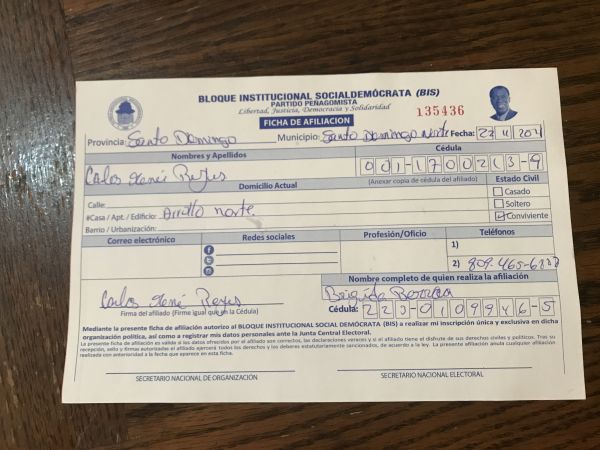 BLOQUE INSTITUCIONAL SOCIALDEMÓCRATA (BIS)
PARTIDO PEÑAGOMISTA
Libertad, Justicia, Democracia y Solidaridad
135436
FICHA DE AFILIACION
Provincia: Santo Domingo Municipio: Santo Domingo Norte Fecha:
Nombres y Apellidos Cédula
Reyes 001-1700213-9
Domicilio Actual (Anexar copia de cédula del afiliado) Estado Civil
Calle: Casado
#Casa / Apt. / Edificio: norte. Soltero
Barrio / Urbanización: Conviviente
Correo electrónico Redes sociales Profesión/Oficio Teléfonos
1)
2) 809-465-
Nombre completo de quien realiza la afiliación
Reyes Brigida
Firma del afiliado (Firme igual que en la Cédula) Cédula: 223-0109946-5
Mediante la presente ficha de afiliación autorizo al BLOQUE INSTITUCIONAL SOCIAL DEMÓCRATA (BIS) a realizar mi inscripción única y exclusiva en dicha
organización política, así como a registrar mis datos personales ante la Junta Central Electoral.
La presente ficha de afiliación es valida si los datos ofrecidos por el afiliado son correctos, las declaraciones veraces y si el afiliado tiene el disfrute de sus derechos civiles y políticos. Tras su
recepción, sello y firmas autorizadas el afiliado ejercerá todos los derechos y los deberes estatutariamente sancionados, de acuerdo a la ley. La presente afiliación anula cualquier afiliación
realizada con anterioridad a la fecha que aparece en esta ficha.
SECRETARIO NACIONAL DE ORGANIZACIÓN SECRETARIO NACIONAL ELECTORAL